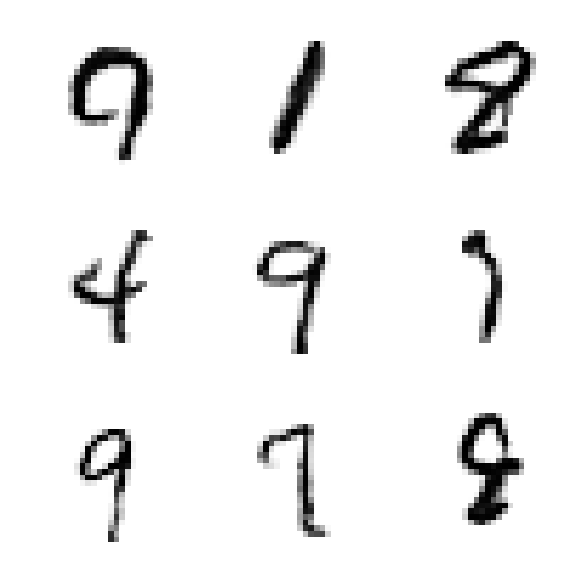 9 1 8
4 9 9
9 7 8